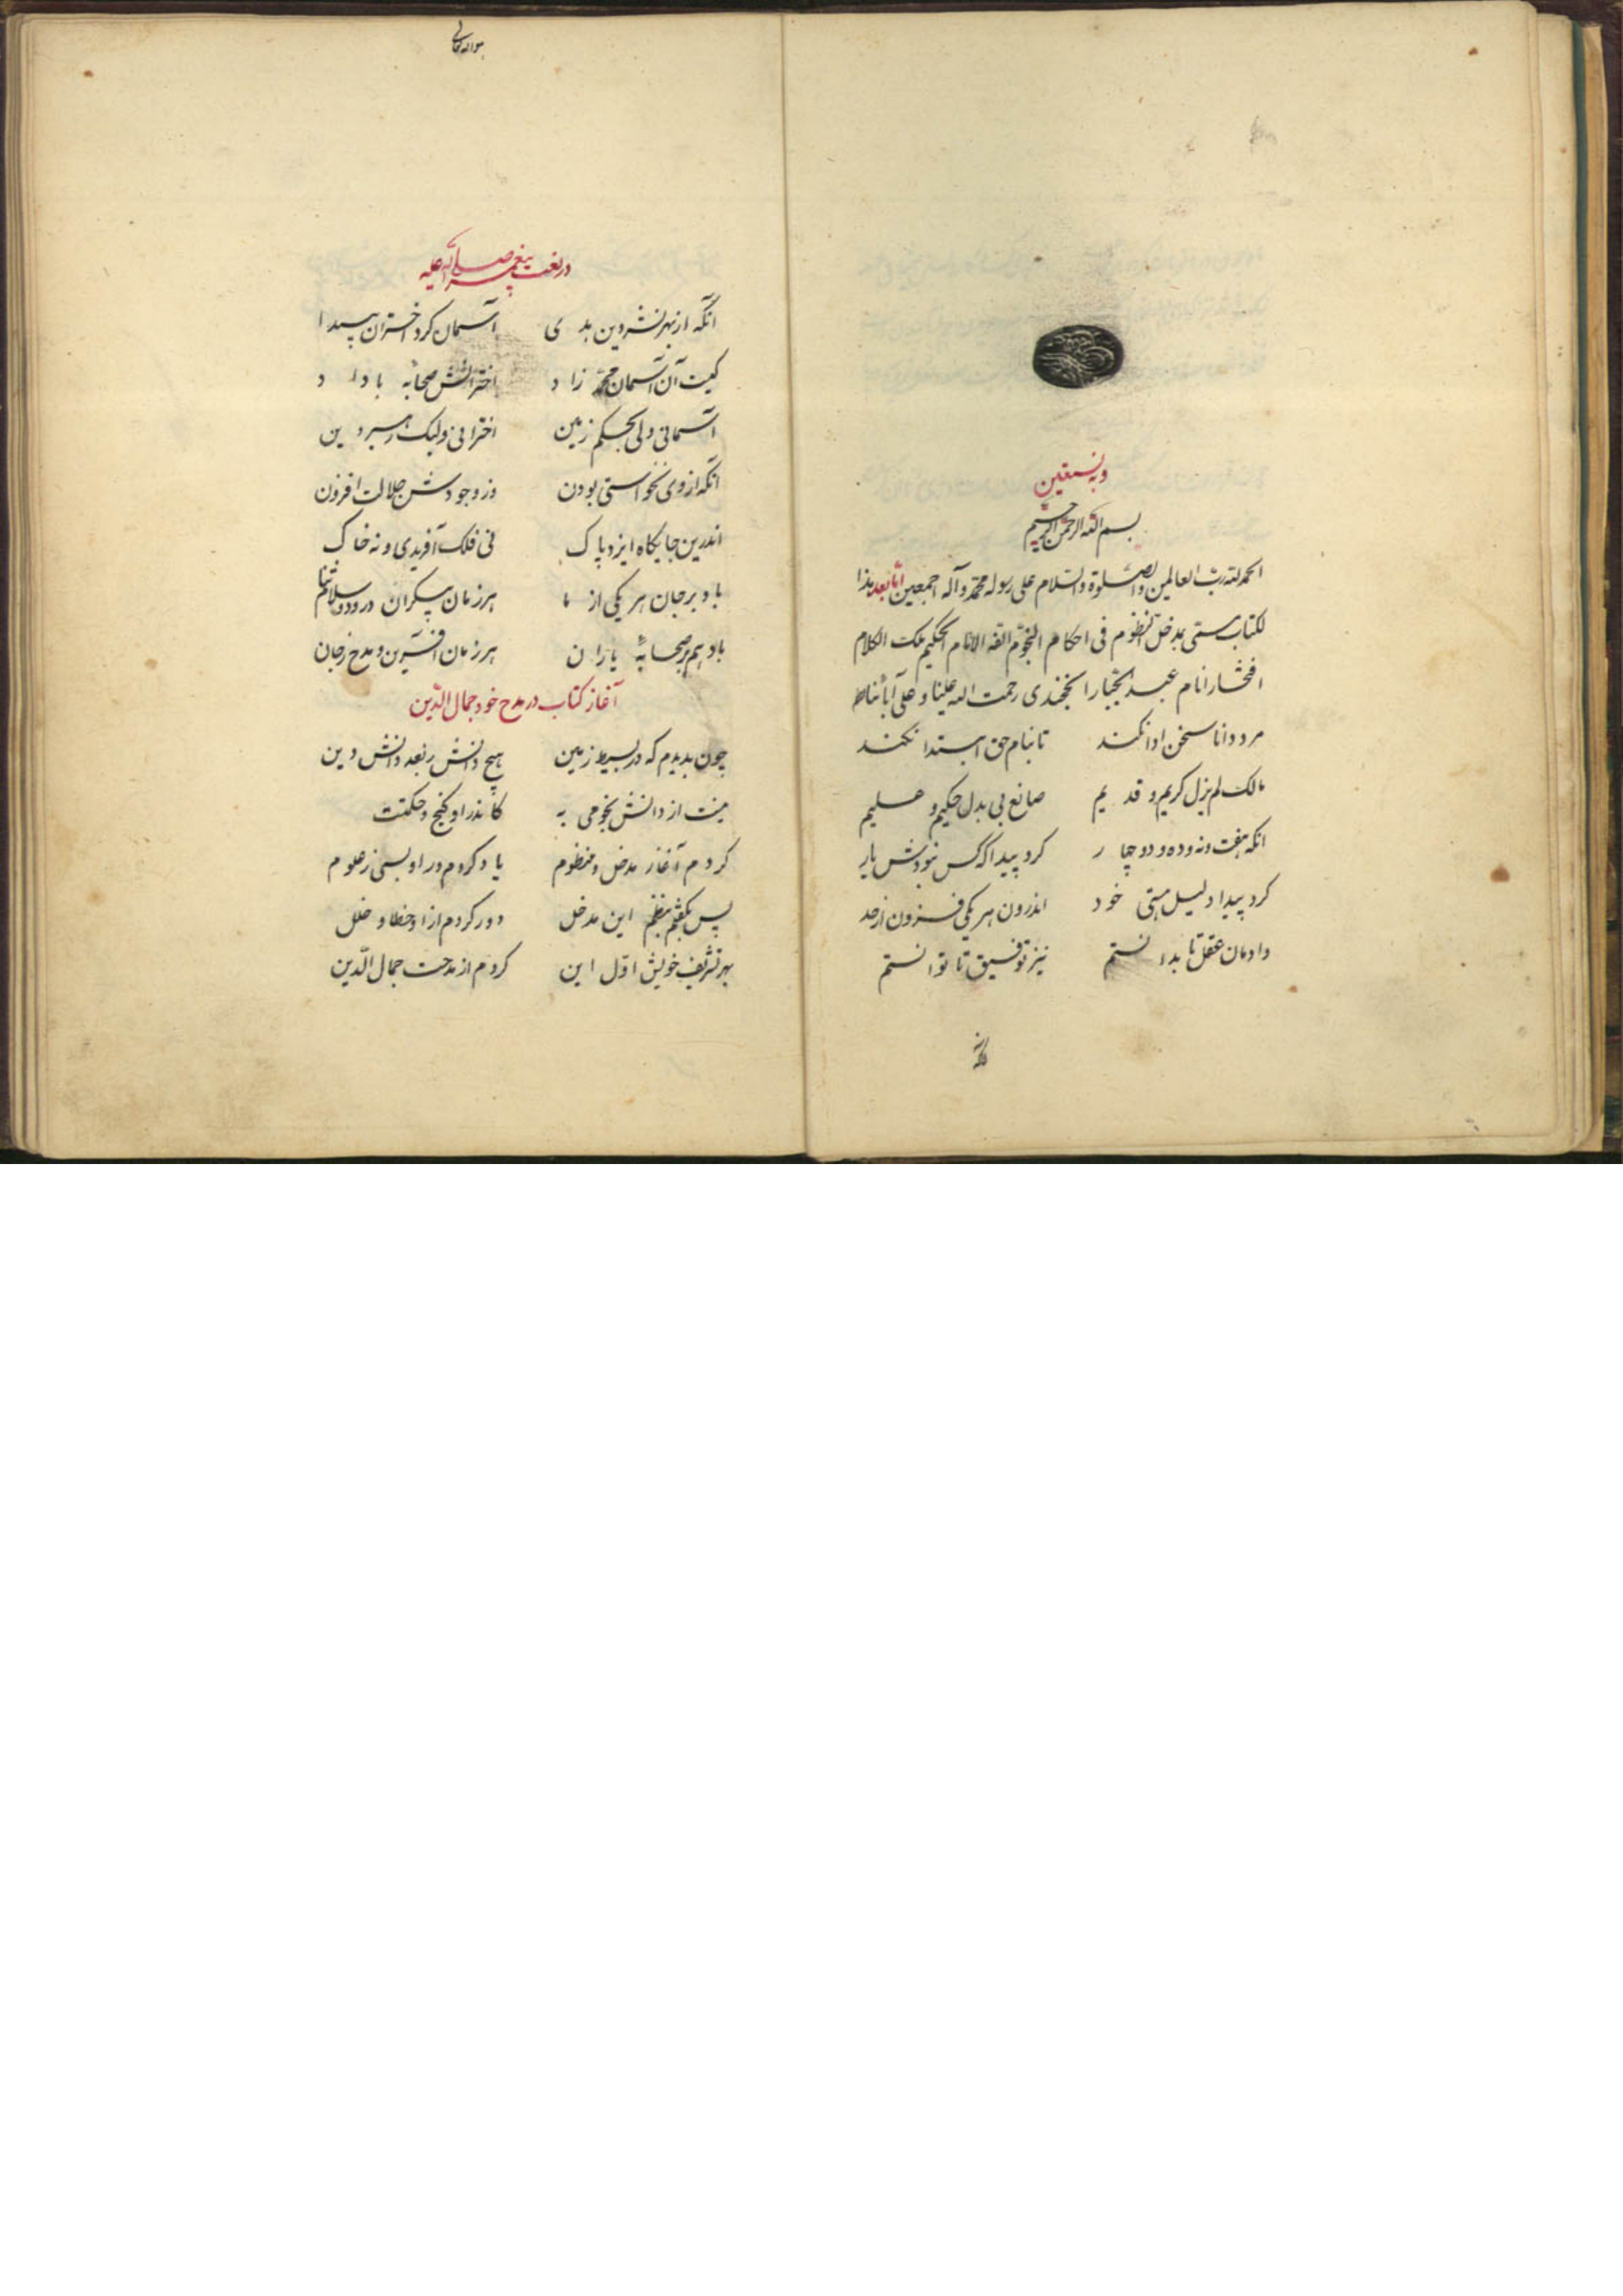 وبه نستعین
بسم الله الرحمن الرحیم
الحمد لله ربّ العالمین والصّلوة والسّلام علی رسوله محمّد وآله اجمعین امّا بعد هذا
لکتاب مسمّی بمدخل منظوم فی احکام النجوم الفه الامام الحکیم ملک الکلام
افتخار انام عبد الجبّار الخجندی رحمت الله علینا و علی آبائنا
مرد دانا سخن ادا نکند تا بنام حق ابتدا نکند
مالک لم یزل کریم و قدیم صانع بی بدل حکیم و علیم
انکه هفت و نه و ده و دو و چهار کرد پیدا که کس نبودش یار
کرد پیدا دلیل هستی خود اندرون هر یکی فزون از حد
دادمان عقل تا بدانستم نیز توفیق تا توانستم
انکه از
هو الله تعالی
در نعت پیغمبر صلی الله علیه
آنکه از بهر نشر دین هدی آسمان کرد و اختران پیدا
کیست آن آسمان محمّد راد اخترانش صحابه با داد
آسمانی ولی بحکم زمین اخترانی ولیک رهبر دین
آنکه از وی نخواستی بودن وز وجودش جلالت افزودن
اندرین جایگاه ایزد پاک نی فلک آفریدی و نه خاک
باد بر جان هر یکی از ما هر زمان بیکران درود و سلام ثنا
باد هم بر صحابهٔ یاران هر زمان آفرین و مدح ز جان
آغاز کتاب در مدح خود جمال الدّین
چون بدیدم که در بسیط زمین هیچ دانش ز بعد دانش دین
نیست از دانش نجومی به کاندر او گنج و حکمتت
کردم آغاز مدخل منظوم یاد کردم در او بسی ز علوم
پس بگفتم بنظم این مدخل دور کردم از او خطا و خلل
بهر تشریف خویش اوّل این کردم از مدحت جمال الدّین